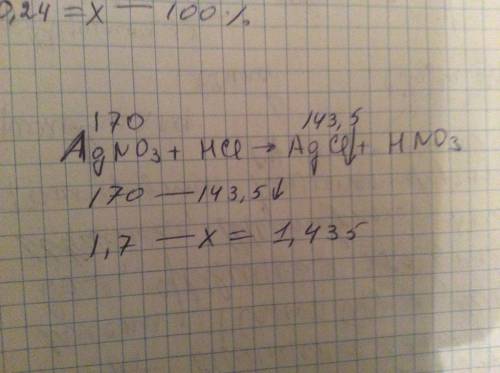 0,24 = x — 100%
170 143,5
AgNO₃ + HCl → AgCl↓ + HNO₃
170 — 143,5↓
1,7 — x = 1,435